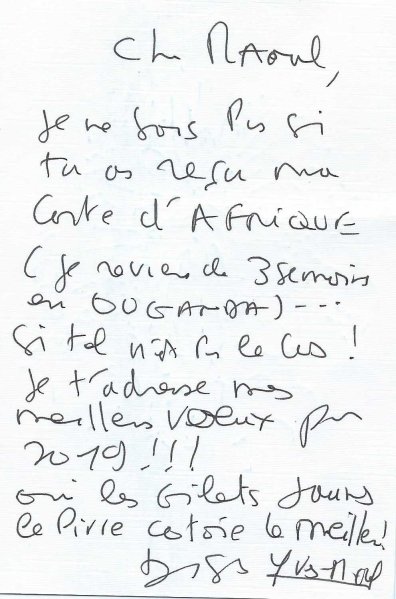 Cher RAOUL,
Je ne sais pas si
tu as reçu ma
carte d'AFRIQUE
(je reviens de 3 semaines
en OUGANDA) ---
si tel n'est pas le cas !
Je t'adresse mes
meilleurs voeux pour
2019 !!!
où les Gilets Jaunes
le Pire cotoie le meilleur!
Yves-Noel